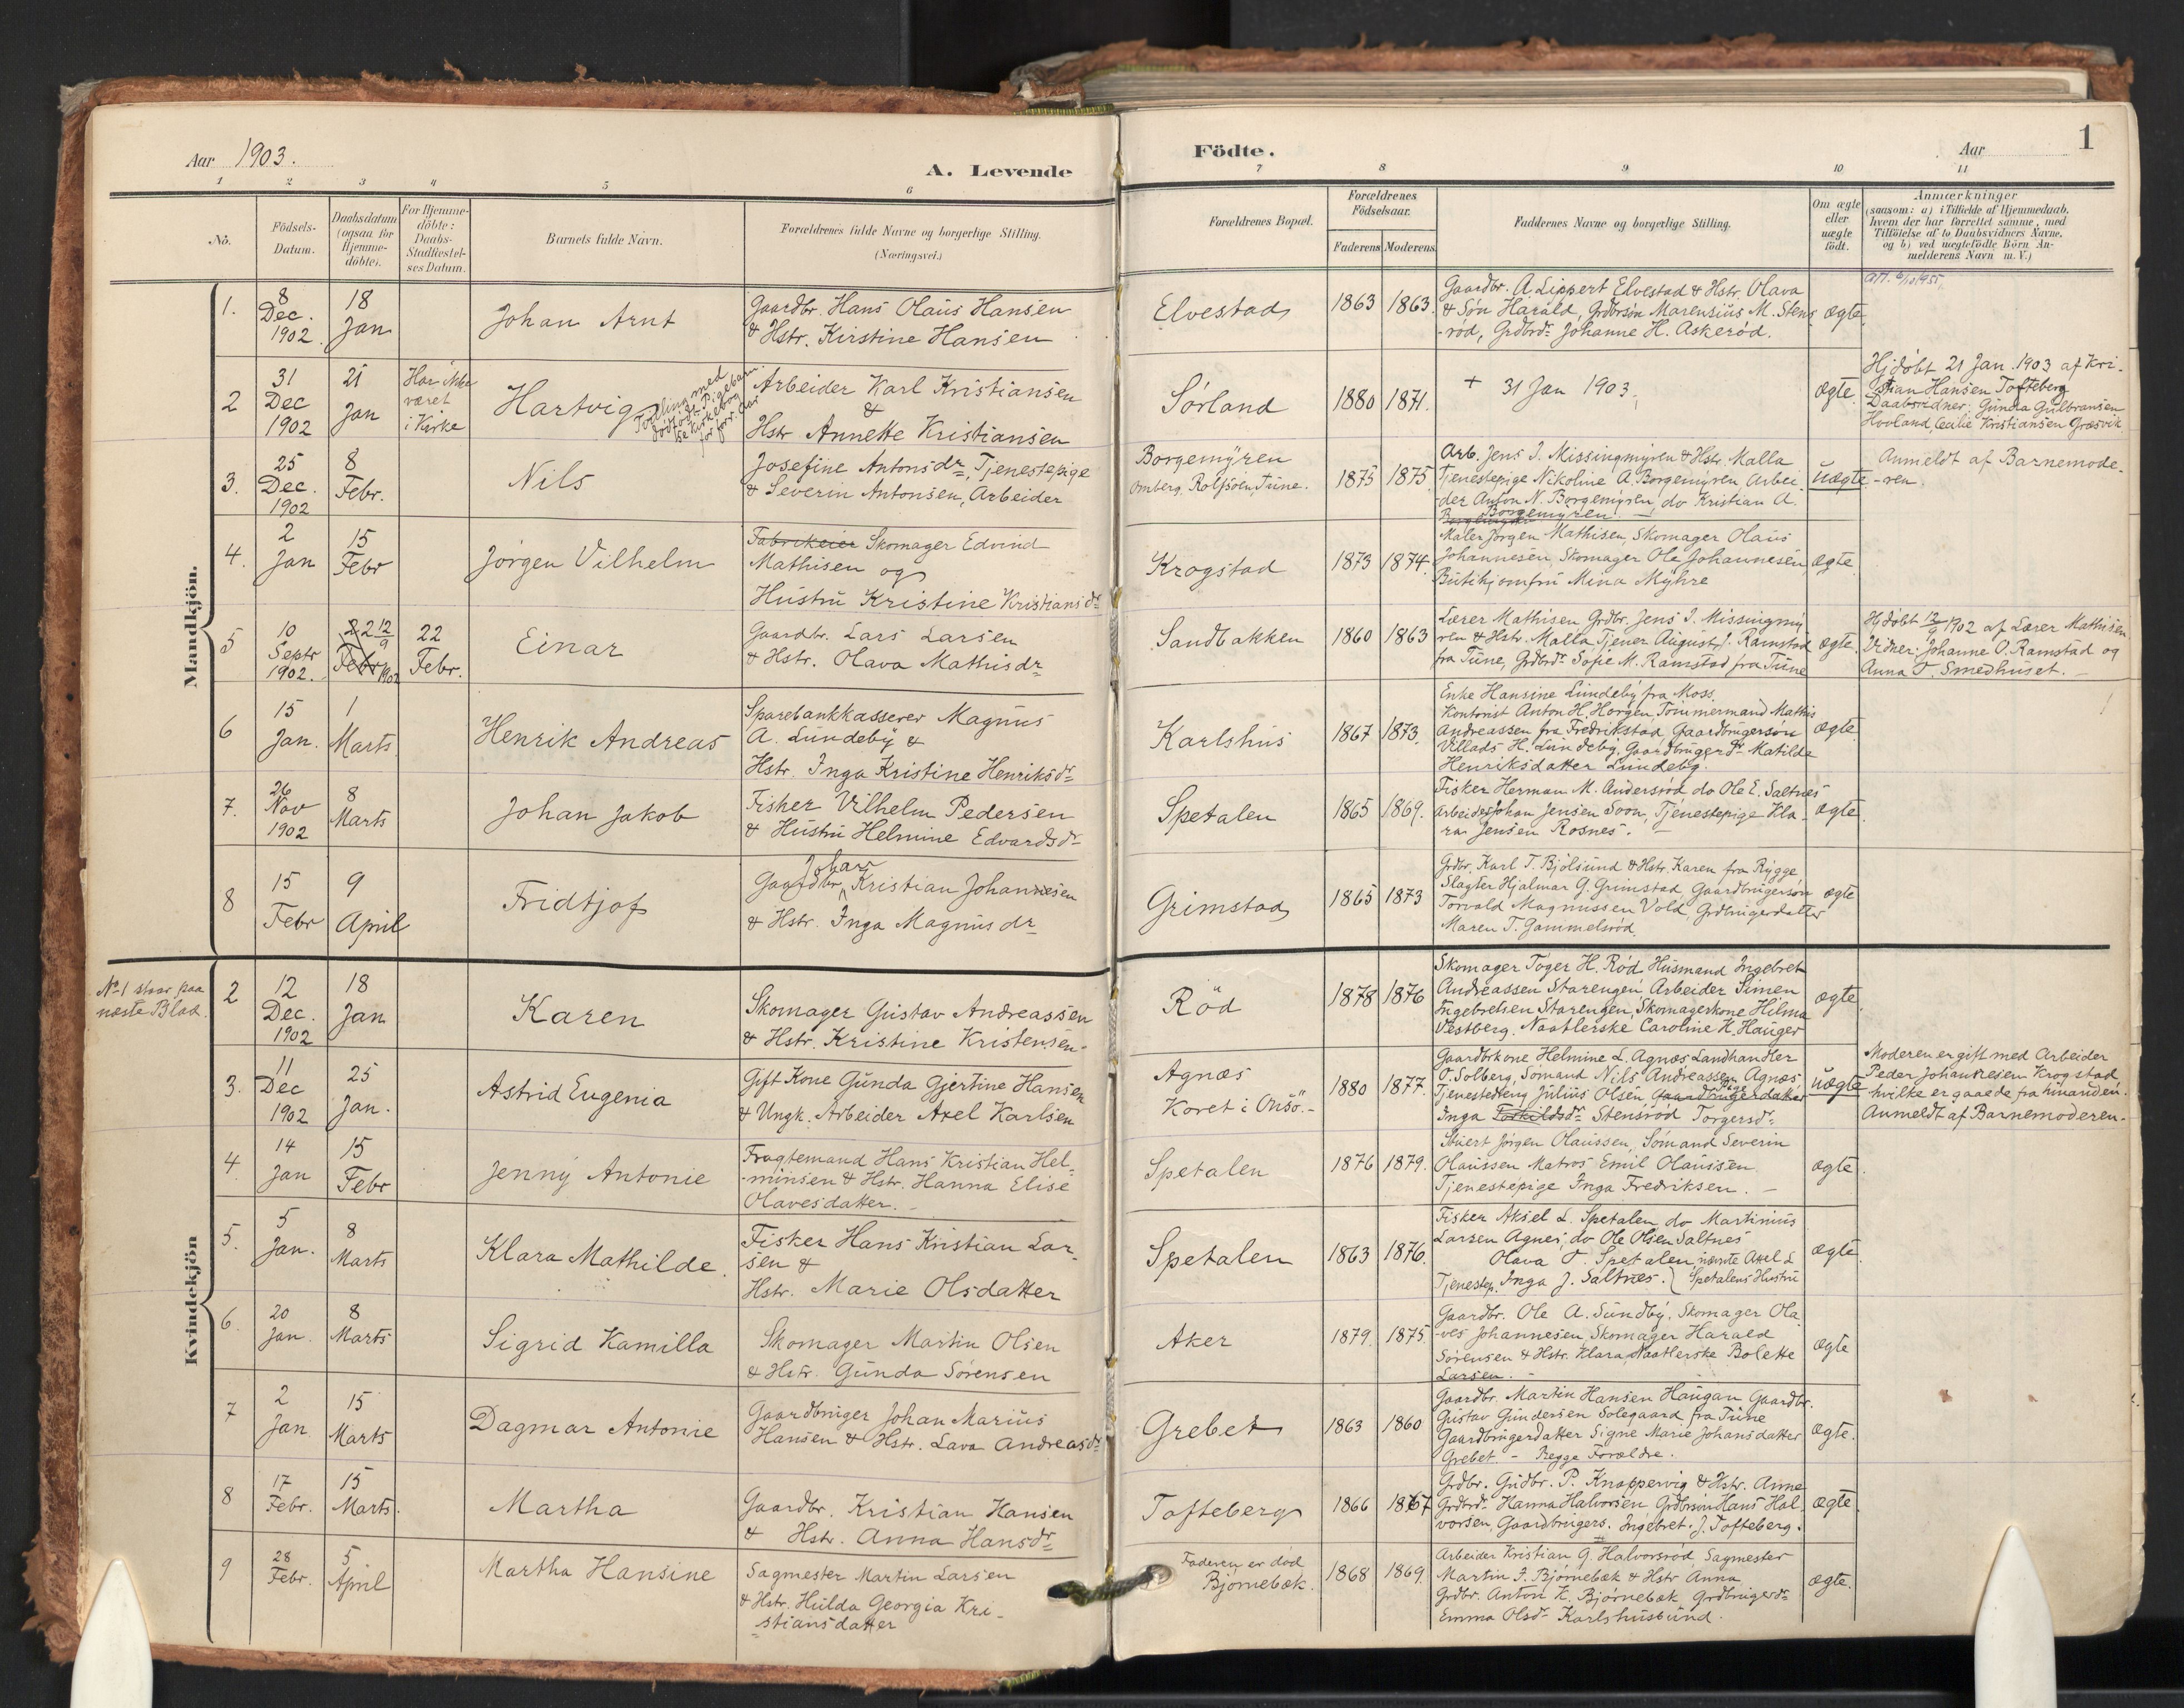 Aar 1903.
A. Levende
Födte.
Aar
1
1 2 3 4 5 6 7 8 9 10 11
No.
Födsels-
Datum.
Daabsdatum
(ogsaa for
Hjemme-
döbte).
For Hjemme-
döbte:
Daabs-
Stadfæstel-
ses Datum.
Barnets fulde Navn.
Forældrenes fulde Navne og borgerlige Stilling.
(Næringsvei.)
Forældrenes Bopæl.
Forældrenes
Födselsaar.
Faderens Moderens
Faddernes Navne og borgerlige Stilling.
Om ægte
eller
uægte
födt.
Anmærkninger
(saasom: a) i Tilfælde af Hjemmedaab,
hvem der har forrettet samme, med
Tilföielse af to Daabsvidners Navne,
og b) ved uægtefödte Börn An-
melderens Navn m. V.)
Mandkjön.
1.
8
Dec.
1902.
18
Jan
Johan Arnt
Gaardbr. Hans Olaus Hansen
& Hstr. Kirstine Hansen
Elvestad
1863 1863.
Gaardbr. A. Lippert Elvestad & Hstr. Olava
& Søn Harald, Grdbrsøn Marensius M. Stens
-rød, Grdbrdr Johanne H. Askerød.
ægte.
2
31
Dec
1902
21
Jan
Har ikke
været
i Kirke
Hartvig
Tvilling med
dødfødt Pigebarn
se Kirkebog
for forr. Aar
Arbeider Karl Kristiansen
&
Hstr Annette Kristiansen
Sørland
1880 1871.
+ 31 Jan 1903.
ægte.
Hjdøbt 21 Jan. 1903 af Kri-
stian Hansen Tofteberg
Daabsvidner: Gunda Gulbransen
Hovland, Cecilie Kristiansen Græsvik
3.
25
Dec.
1902
8
Febr.
Nils
Josefine Antonsdr, Tjenestepige
& Severin Antonsen, Arbeider
Borgemyren
Omberg. Rolfsøen, Tune.
1875 1875
Arb. Jens J. Missingmyren & Hstr. Malla
Tjenestepige Nikoline A. Borgemyren Arbei-
der Anton N. Borgemyren, do Kristian A.
Borgemyren. —
uægte
Anmeldt af Barnemode-
-ren
4.
2
Jan
15
Febr
Jørgen Vilhelm
Fabrikeier Skomager Edvind
Mathisen og
Hustru Kristine Kristiansdr
Krogstad
1873 1874.
Maler Jørgen Mathisen, Skomager Olaus
Johannesen, Skomager Ole Johannesen,
Butikjomfru Mina Myhre
ægte.
5
10
Septr
1902.
22 12/9
Febr 1902
22
Febr.
Einar
Gaardbr. Lars Larsen
& Hstr. Olava Mathisdr
Sandbakken
1860 1863
Lærer Mathisen Grdbr. Jens J. Missingmy
ren & Hstr. Malla Tjener August J. Ramstad
fra Tune, Grdbrdr Sofie M. Ramstad fra Tune
ægte.
Hjdøbt 12/9 1902 af Lærer Mathisen
Vidner: Johanne O. Ramstad og
Anna T. Smedhuset. —
6
15
Jan.
1
Marts
Henrik Andreas
Sparebankkasserer Magnus
A. Lundeby &
Hstr. Inga Kristine Henriksdr
Karlshus
1867 1873.
Enke Hansine Lundeby fra Moss.
Kontorist Anton H. Horgen, Tømmermand Mathis
Andreassen fra Fredrikstad, Gaardbrugersøn
Villads H. Lundeby, Gaardbrugerdr Matilde
Henriksdatter Lundeby.
ægte.
7.
26
Nov
1902
8
Marts
Johan Jakob
Fisker Vilhelm Pedersen
& Hustru Helmine Edvardsdr
Spetalen
1865 1869.
Fisker Herman M. Andersrød do Ole E. Saltnes
Arbeider Johan Jensen Soon, Tjenestepige Kla-
ra Jensen Rosnes. —
ægte.
8
15
Febr
9
April
Fridtjof
Johan
Gaardbr, Kristian Johannesen
& Hstr. Inga Magnusdr
Grimstad
1865 1873
Grdbr. Karl T. Bjølsund & Hstr. Karen fra Rygge
Slagter Hjalmar G. Grimstad, Gaardbrugersøn
Torvald Magnussen Vold, Grdbrugerdatter
Maren T. Gammelsrød.
ægte
Kvindekjön
No 1 staar paa
næste Blad.
2
12
Dec.
1902
18
Jan
Karen
Skomager Gustav Andreassen
& Hstr. Kristine Kristensen.
Röd
1878 1876
Skomager Toger H. Rød Husmand Ingebret
Andreassen Starengen Arbeider Simen
Ingebretsen Starengen, Skomagerkone Hilma
Vestberg. Naatlerske Caroline H. Hauger
ægte.
3.
11
Dec
1902
25
Jan.
Astrid Eugenia
Gift Kone Gunda Gjertine Hansen
& Ungk. Arbeider Axel Karlsen
Agnæs
Koret i Onsö.-
1880 1877.
Gaardbrkone Helmine L. Agnæs Landhandler
O. Solberg, Sømand Nils Andreassen Agnæs
Tjenestedreng Julius Olsen, Gaardbrugerdatter
Inga Torkildsdr Stensrød Torgersdr.
uægte
Moderen er gift med Arbeider
Peder Johannesen Krogstad
hvilke er gaaede fra hinanden.
Anmeldt af Barnemoderen.
4.
14
Jan
15
Febr
Jenny Antonie
Fragtemand Hans Kristian Hel-
-minsen & Hstr. Hanna Elise
Olavesdatter.
Spetalen
1876 1879.
Stuert Jørgen Olaussen, Sømand Severin
Olaussen Matros Emil Olaussen
Tjenestepige Inga Fredriksen. —
ægte.
5.
5
Jan.
8
Marts
Klara Mathilde.
Fisker Hans Kristian Lar-
sen &
Hstr. Marie Olsdatter
Spetalen
1863 1876.
Fisker Aksel L. Spetalen do Martinius
Larsen Agnes, do Ole Olsen Saltnes
Olava T. Spetalen nævnte Axel L
Tjenestep. Inga J. Saltnes. } Spetalens Hustru
ægte.
6.
20
Jan.
8
Marts
Sigrid Kamilla
Skomager Martin Olsen
& Hstr. Gunda Sørensen
Aker
1879. 1875.
Gaardbr. Ole A. Sundby, Skomager Ola
-ves Johannesen, Skomager Harald
Sørensen & Hstr. Klara, Naatlerske Bolette
Larsen. -
ægte
7
2
Jan.
15
Marts
Dagmar Antonie
Gaardbruger Johan Marius
Hansen & Hstr. Lava Andreasdr
Grebet
1863 1860
Gaardbr. Martin Hansen Haugan Gaardbr.
Gustav Gundersen Solegaard fra Tune
Gaardbrugerdatter Signe Marie Johansdatter
Grebet. - Begge Forældre.
ægte.
8
17
Febr.
15
Marts.
Martha
Gaardbr. Kristian Hansen
& Hstr. Anna Hansdr
Tofteberg
1866 1867
Grdbr. Gudbr. P. Knappervig & Hstr. Anne
Grdbrdr Hanna Halvorsen Grdbrsøn Hans Hal
vorsen, Gaardbrugers. Ingebret. J. Tofteberg.
ægte.
9
28
Febr.
5
April
Martha Hansine
Sagmester Martin Larsen
& Hstr. Hulda Georgia Kri-
stiansdatter
Faderen er død
Bjørnebæk.
1868 1869.
Arbeider Kristian G. Halvorsrød, Sagmester
Martin J. Bjørnebæk & Hstr Anna
Grdbr. Anton K. Bjørnebæk Grdbrugerdr
Emma Olsdr Karlshusbund.
ægte.